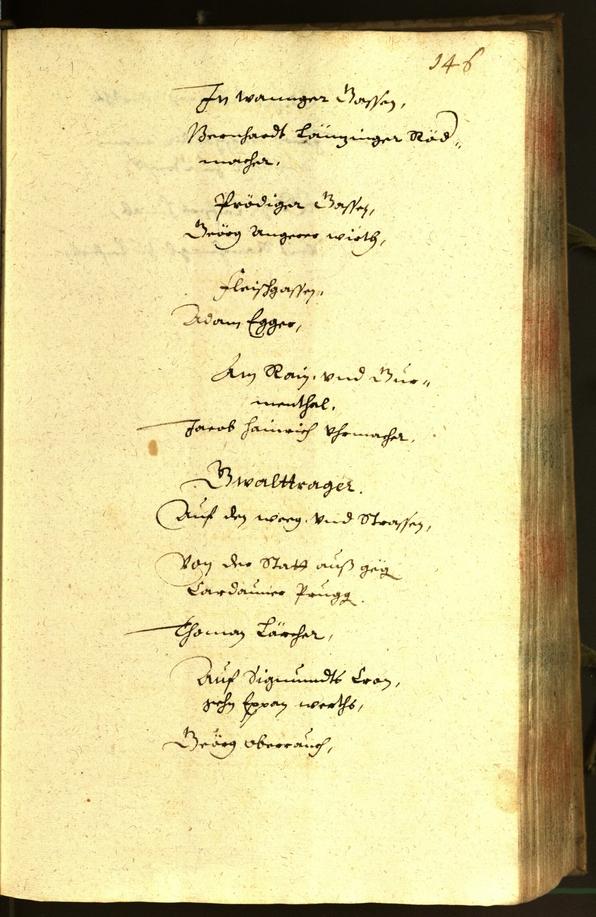 146
In wannger Gassen,
Bernhardt Länzinger Röd¬
macher,
Prödiger Gassen,
Geörg Angerer wirth,
Fleischgassen,
Adam Egger,
Am Rain, vnd Gur¬
menthal,
Jacob Hainrich Vhrmacher,
Gwalttrager.
Auf den weeg, vnd Strassen,
Von der Statt auß geg
Cardauner Prugg.
Thoman Lärcher,
Auf Sigmundts Cron,
gehn Eppan werths,
Geörg Oberrauch,